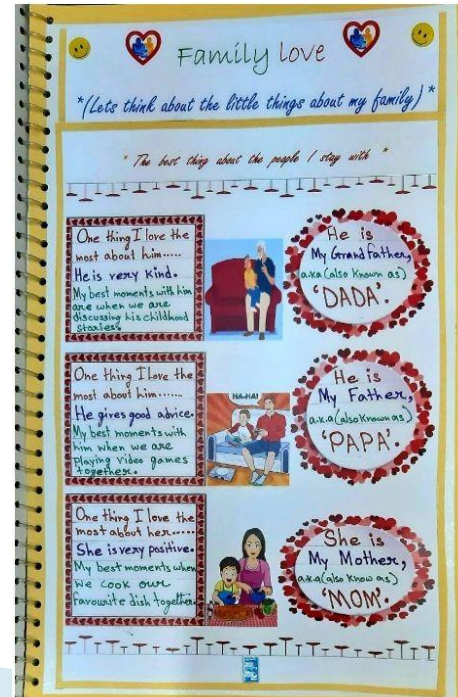 Family love
*(Lets think about the little things about my family)*
" The best thing about the people I stay with "
One thing I love the
most about him.....
He is very kind.
My best moments with him
are when we are
discussing his childhood
stories.
He is
My Grand father,
a.k.a (also known as)
'DADA'.
One thing I love the
most about him......
He gives good advice.
My best moments with
him when we are
playing video games
together.
HA-HA!
He is
My Father,
a.k.a (also known as)
'PAPA'.
One thing I love the
most about her.....
She is very positive.
My best moments when
we cook our
favourite dish together.
She is
My Mother,
a.k.a (also know as)
'MOM'.